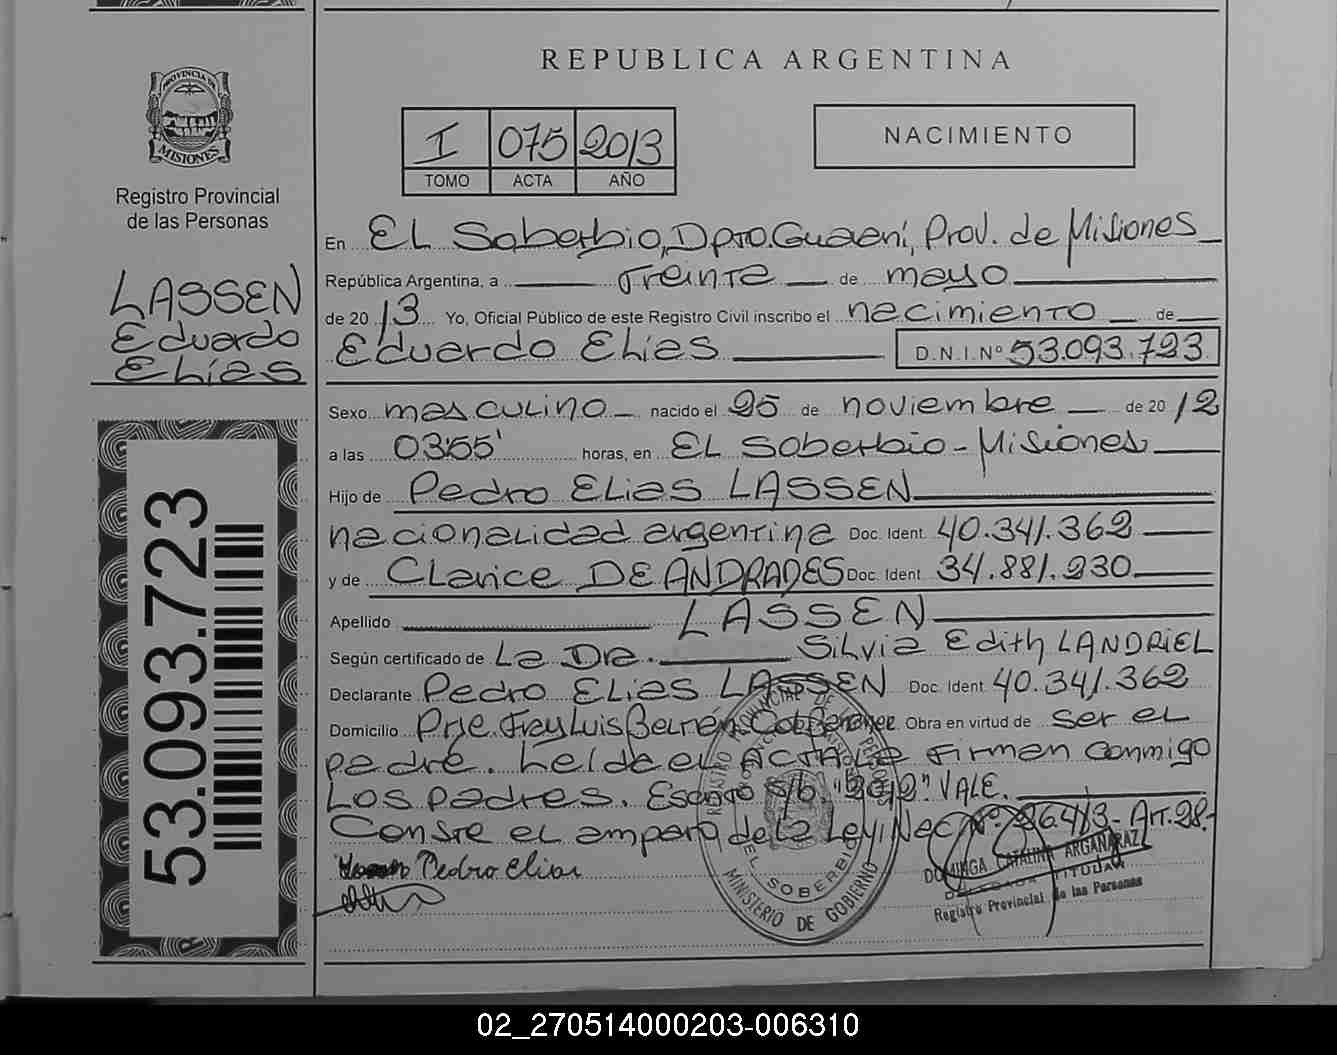 REPUBLICA ARGENTINA
PROVINCIA DE
MISIONES
Registro Provincial
de las Personas
LASSEN
Eduardo
Elías
53.093.723
I 075 2013
TOMO ACTA AÑO
NACIMIENTO
En EL Soberbio, Dpto. Guaraní, Prov. de Misiones
República Argentina, a treinta de mayo
de 2013 Yo, Oficial Público de este Registro Civil inscribo el nacimiento de
Eduardo Elías D.N.I.Nº 53.093.723
Sexo masculino nacido el 25 de noviembre de 2012
a las 03:55' horas, en EL Soberbio - Misiones
Hijo de Pedro Elias LASSEN
nacionalidad argentina Doc. Ident. 40.341.362
y de Clarice DE ANDRADES Doc. Ident. 34.881.230
Apellido LASSEN
Según certificado de La Dra. Silvia Edith LANDRIEL
Declarante Pedro Elias LASSEN Doc. Ident. 40.341.362
Domicilio Prje. Fray Luis Beltrén Obra en virtud de ser el
padre. Leída el ACTA La firman conmigo
Los padres. s/b. "2012". VALE.
Conste el amparo de la Ley Nac. Nº. 26.413 - Art. 28.-
Pedro Elias
REGISTRO PROVINCIAL DE LAS PERSONAS
EL SOBERBIO
MINISTERIO DE GOBIERNO
DOMINGA CATALINA ARGAÑARAZ
DELEGADA TITULAR
Registro Provincial de las Personas
02_270514000203-006310